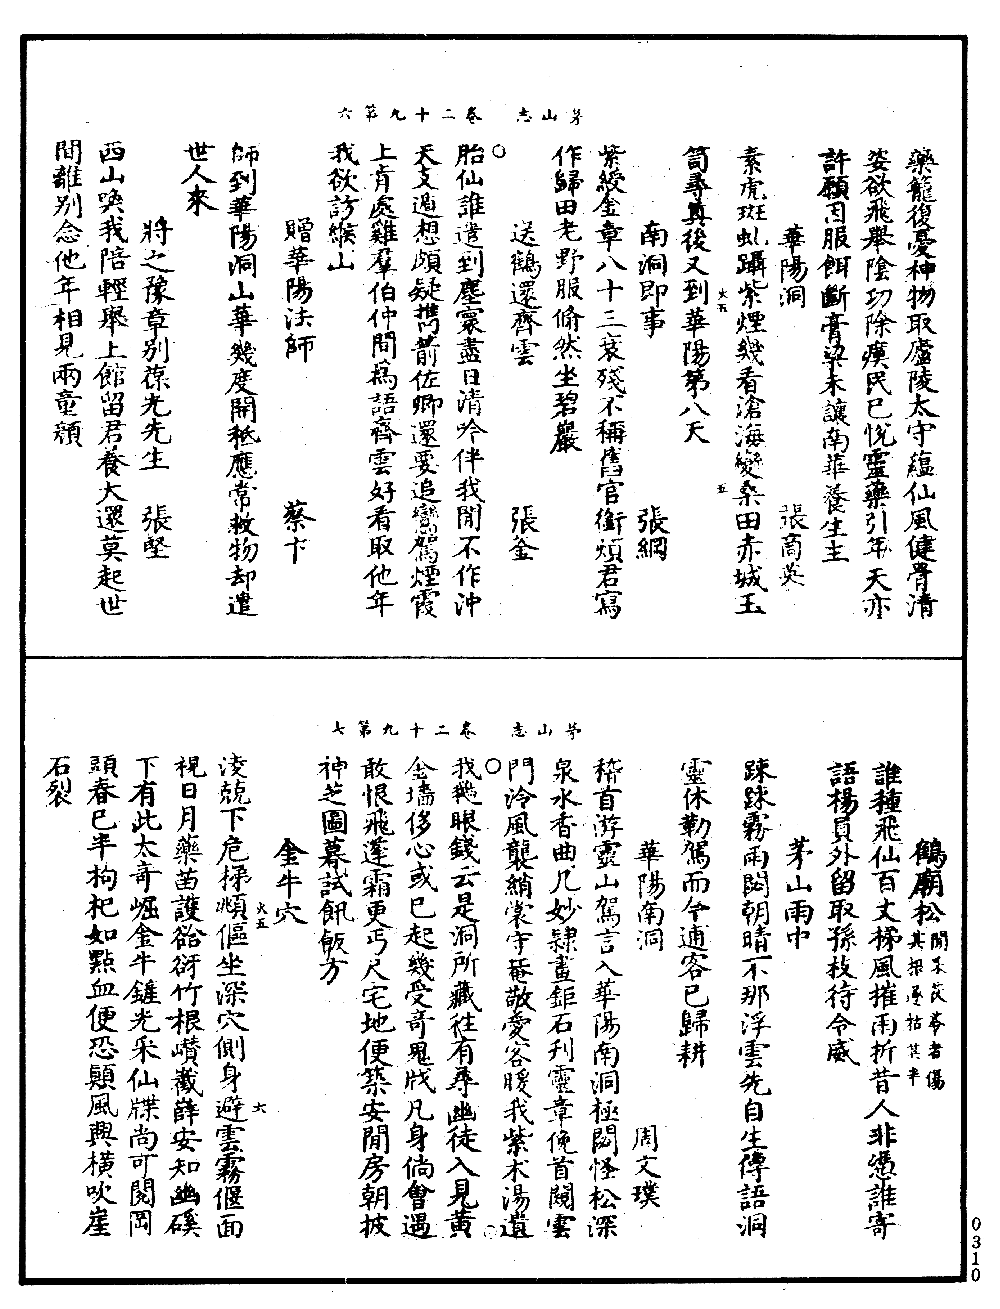 茅山志　卷二十九第六
藥籠復憂神物取廬陵太守蘊仙風健骨清
姿欲飛舉陰功除瘼民已悅靈藥引年天亦
許願因服餌斷膏粱未讓南華養生主
華陽洞　張商英
素虎斑虬躡紫煙幾看滄海變桑田赤城玉
笥尋真後又到華陽第八天
火五　五
南洞即事　張綱
紫綬金章八十三衰殘不稱舊官銜煩君寫
作歸田老野服翛然坐碧巖
送鶴還齊雲　張金
胎仙誰遣到塵寰盡日清吟伴我閒不作沖
天支遁想頗疑擕箭佐卿還要追鸞駕煙霞
上肯處雞羣伯仲間為語齊雲好看取他年
我欲訪緱山
贈華陽法師　蔡卞
師到華陽洞山華幾度開秪應常救物却遣
世人來
將之豫章別葆光先生　張堅
西山喚我陪輕舉上館留君養大還莫起世
間離別念他年相見兩童顏
茅山志　卷二十九第七
鶴廟松
誰種飛仙百丈梯風摧雨折昔人非憑誰寄
語楊員外留取孫枝待令威
茅山雨中
踈踈霧雨閟朝晴不那浮雲先自生傳語洞
靈休勒駕而今逋客已歸耕
華陽南洞　周文璞
稽首游靈山駕言入華陽南洞極閟怪松深
泉水香曲几妙隸畫鉅石刋靈章俛首閱雲
門泠風襲綃裳守菴敬愛客暖我紫朮湯遺
我鵝眼錢云是洞所藏徃有尋幽徒入見黃
金墻侈心或已起幾受奇鬼戕凡身倘會遇
敢恨飛蓬霜更丐尺宅地便築安閒房朝披
神芝圖暮試飢飯方
金牛穴
火五　六
淩兢下危梯頫傴坐深穴側身避雲霧偃面
視日月藥苗護谽谺竹根巑巀薛安知幽磎
下有此太奇崛金牛鏟光采仙牒尚可閱岡
頭春已半枸杞如點血便恐顛風興橫吹崖
石裂
0310